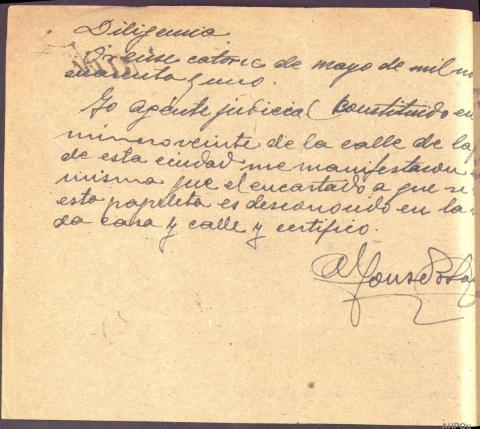 Diligencia
Orense catorce de mayo de mil no
cuarenta y uno.
Yo agente judicial constituido en
número veinte de la calle de la
de esta ciudad me manifestaron
misma que el encartado a que se
esta papeleta es desconocido en la
da casa y calle y certifico.
Alfonso
AHPOu